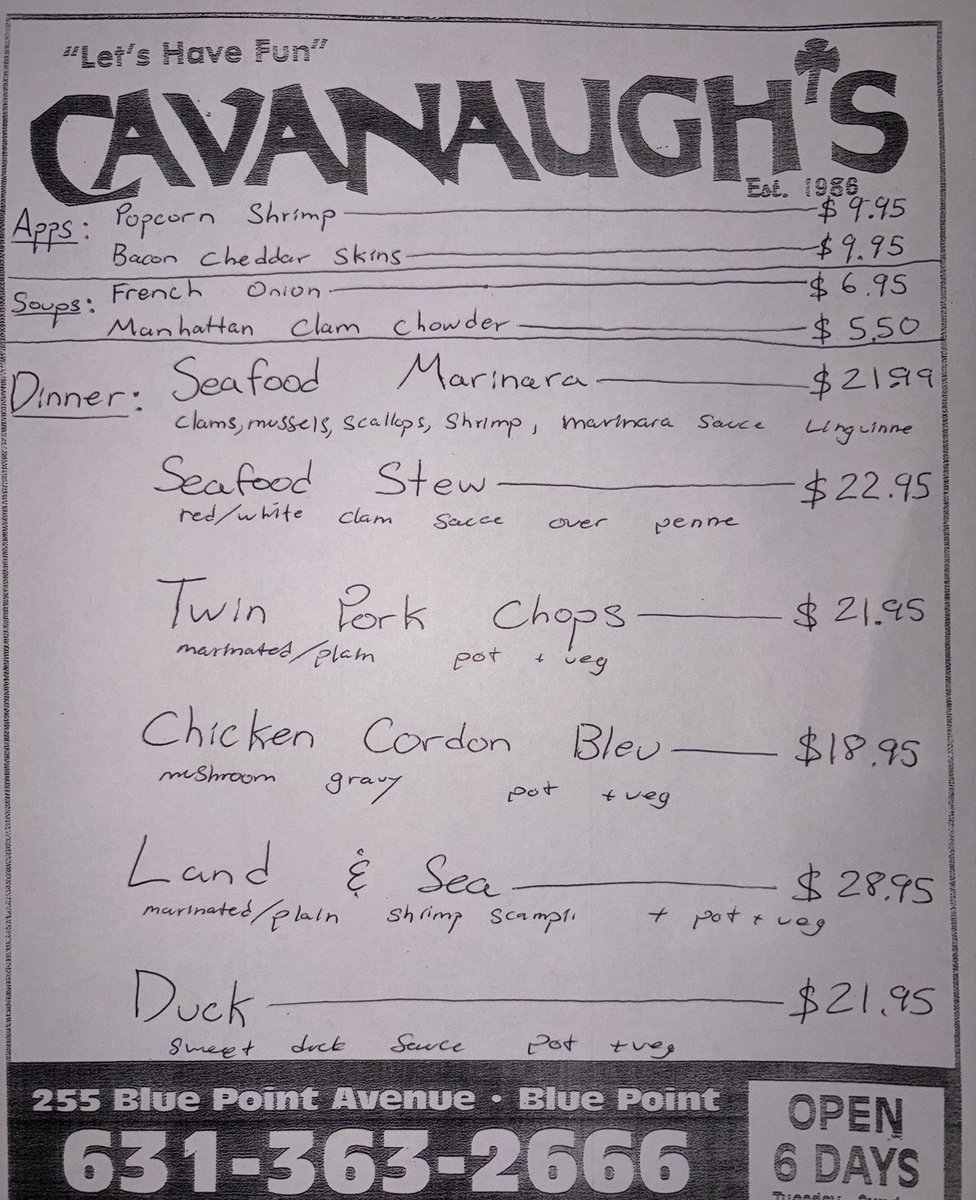 "Let's Have Fun"
CAVANAUGH'S
Est. 1986
Apps: Popcorn Shrimp $9.95
Bacon Cheddar Skins $9.95
Soups: French Onion $6.95
Manhattan Clam Chowder $5.50
Dinner: Seafood Marinara $21.99
clams, mussels, scallops, shrimp, marinara sauce Linguinne
Seafood Stew $22.95
red/white clam sauce over penne
Twin Pork Chops $21.95
marinated/plain pot + veg
Chicken Cordon Bleu $18.95
mushroom gravy pot + veg
Land & Sea $28.95
marinated/plain shrimp scampi + pot + veg
Duck $21.95
sweet duck sauce pot + veg
255 Blue Point Avenue • Blue Point
631-363-2666
OPEN
6 DAYS